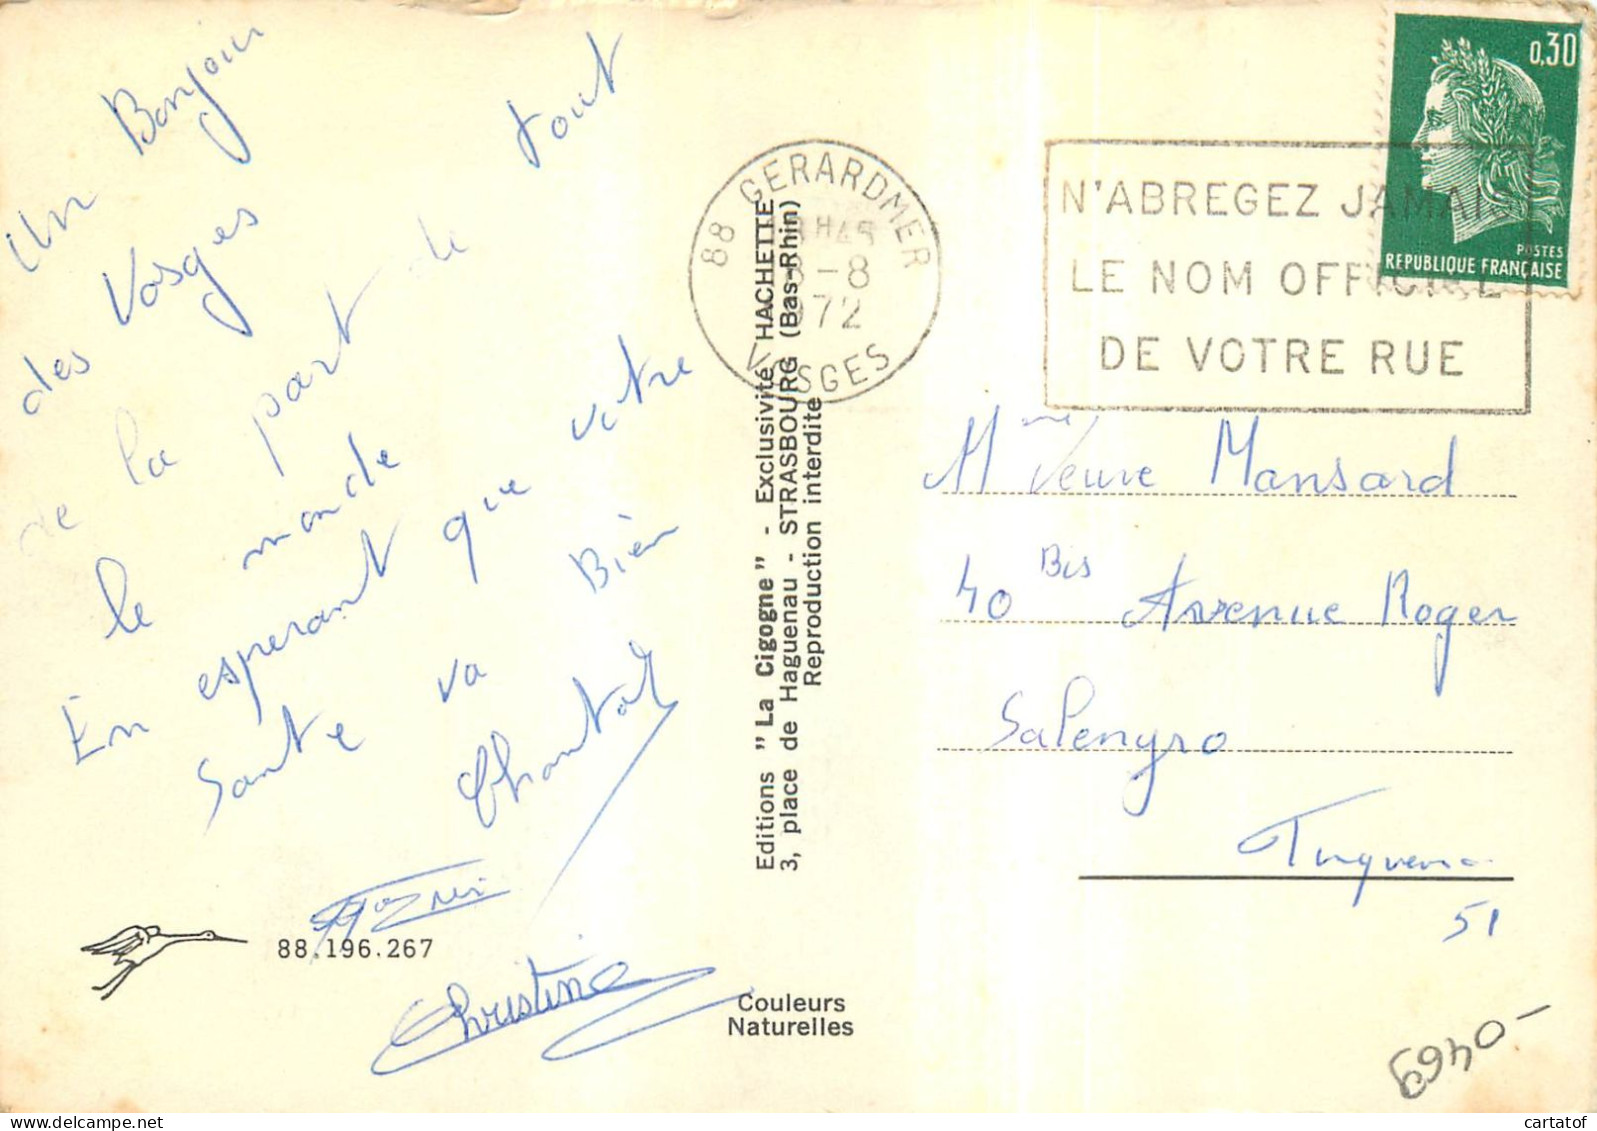 Un Bonjour
des Vosges
de la part de tout
le monde
En esperant que votre
Sante va Bien
Chantal
Christine
88.196.267
Editions "La Cigogne" - Exclusivité HACHETTE
3, place de Haguenau - STRASBOURG (Bas-Rhin)
Reproduction interdite
Couleurs
Naturelles
88 GERARDMER
H45
-8
1972
VOSGES
N'ABREGEZ JAMAIS
LE NOM OFFICIEL
DE VOTRE RUE
0,30
POSTES
REPUBLIQUE FRANÇAISE
Mme Veuve Mansard
40 Bis Avenue Roger
SaLengro
51
6940-
cartatof